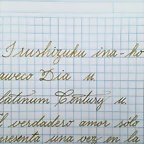 Irushizuku ina-ho
aweco Dia u
latinum Century u
l verdadero amor sólo
presenta una vez en la